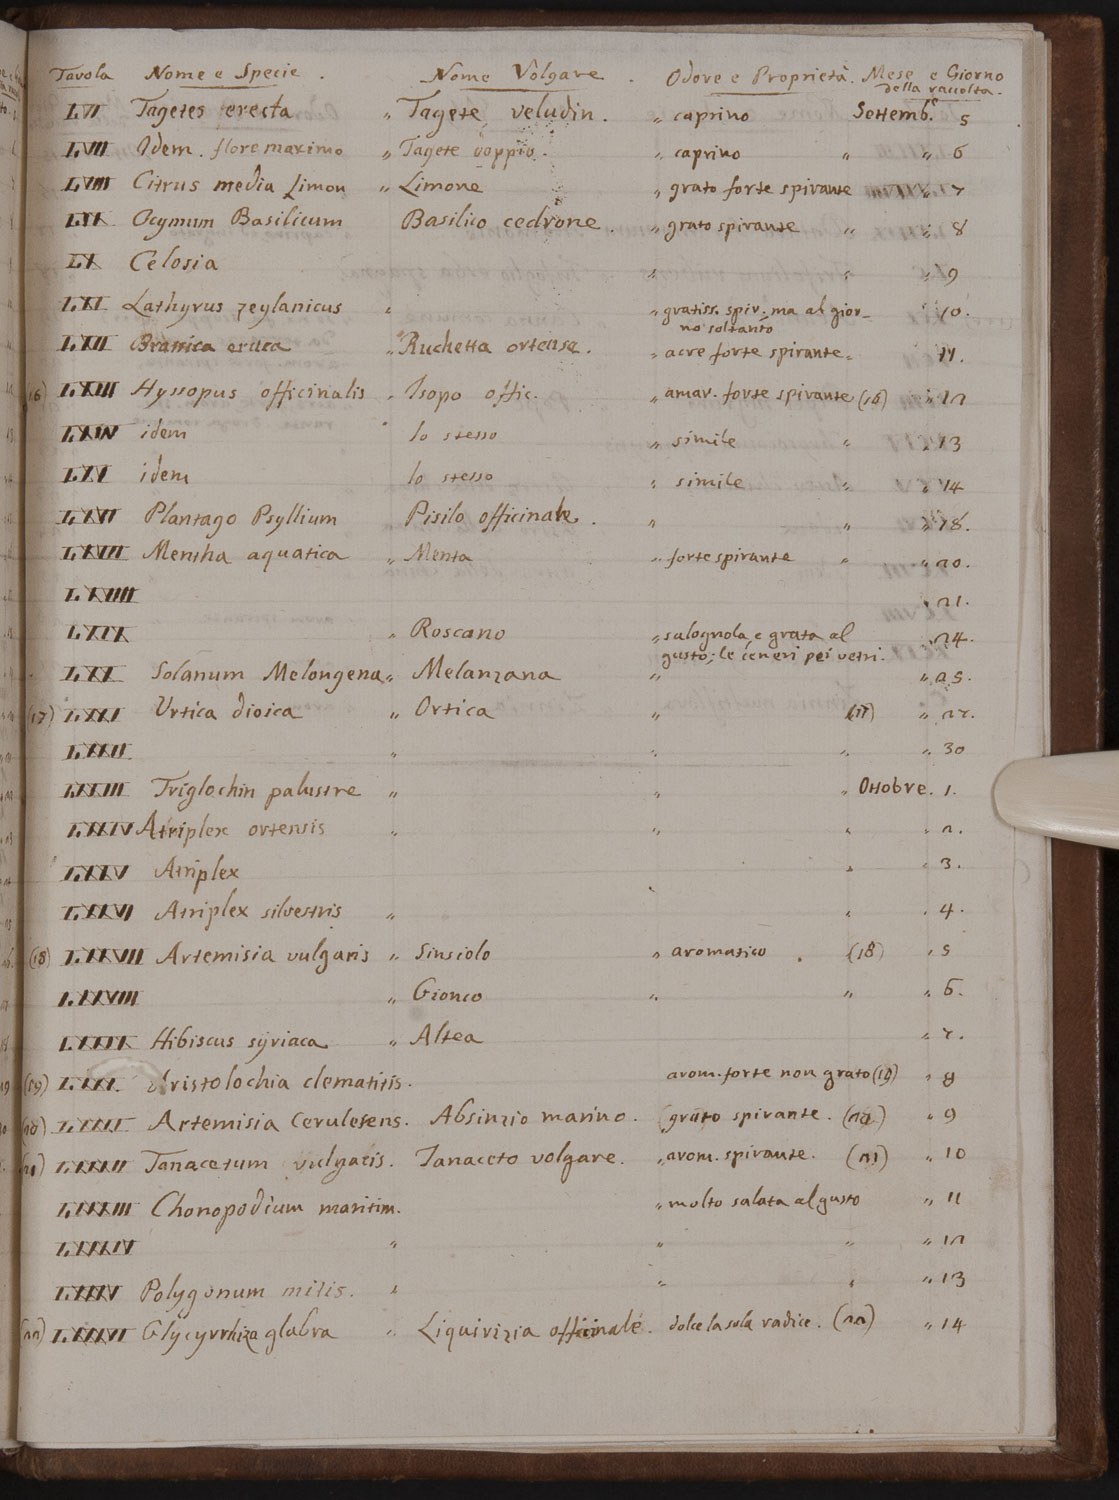 Tavola Nome e Specie. Nome Volgare. Odore e Proprietà. Mese e Giorno
della raccolta.
LVI Tagetes erecta „ Tagete veludin. „ caprino Settembe. 5
LVII Idem. flore maximo „ Tagete doppio. „ caprino „ „ 6
LVIII Citrus media Limon „ Limone „ grato forte spirante „ 7
LIX Ocymum Basilicum Basilico cedrone. „ grato spirante „ „ 8
LX Celosia „ „ „ 9
LXI Lathyrus zeylanicus „ „ gratiss. spir. ma al gior-
no soltanto „ 10.
LXII Brassica eruca „ Ruchetta ortense. „ acre forte spirante „ 11.
(16) LXIII Hyssopus officinalis „ Isopo offic. „ amar. forte spirante (16) „ 12
LXIV idem „ lo stesso „ simile „ „ 13
LXV idem lo stesso „ simile „ „ 14
LXVI Plantago Psyllium Pisilo officinale. „ „ „ 18.
LXVII Mentha aquatica „ Menta „ forte spirante „ „ 20.
LXVIII „ 21.
LXIX „ Roscano „ salognola, e grata al
gusto; le ceneri pei vetri. „ 24.
LXX Solanum Melongena „ Melanzana „ „ 25.
(17) LXXI Urtica dioica „ Ortica „ (17) „ 27.
LXXII „ „ „ „ 30
LXXIII Triglochin palustre „ „ „ Ottobre. 1.
LXXIV Atriplex ortensis „ „ „ „ 2.
LXXV Atriplex „ „ 3.
LXXVI Atriplex silvestris „ „ „ 4.
(18) LXXVII Artemisia vulgaris „ Sinsiolo „ aromatico. (18) „ 5
LXXVIII „ Gionco „ „ „ 6.
LXXIX Hibiscus syriaca „ Altea „ 7.
(19) LXXX Aristolochia clematitis. arom. forte non grato (19) „ 8
(20) LXXXI Artemisia Cerulesens. Absinzio marino. grato spirante. (20) „ 9
(21) LXXXII Tanacetum vulgaris. Tanaceto volgare. „ arom. spirante. (21) „ 10
LXXXIII Chonopodium maritim. „ molto salata al gusto „ 11
LXXXIV „ „ „ „ 12
LXXXV Polygonum mitis. „ „ „ „ 13
(22) LXXXVI Glycyrrhiza glabra „ Liquirizia officinale. dolce la sola radice. (22) „ 14